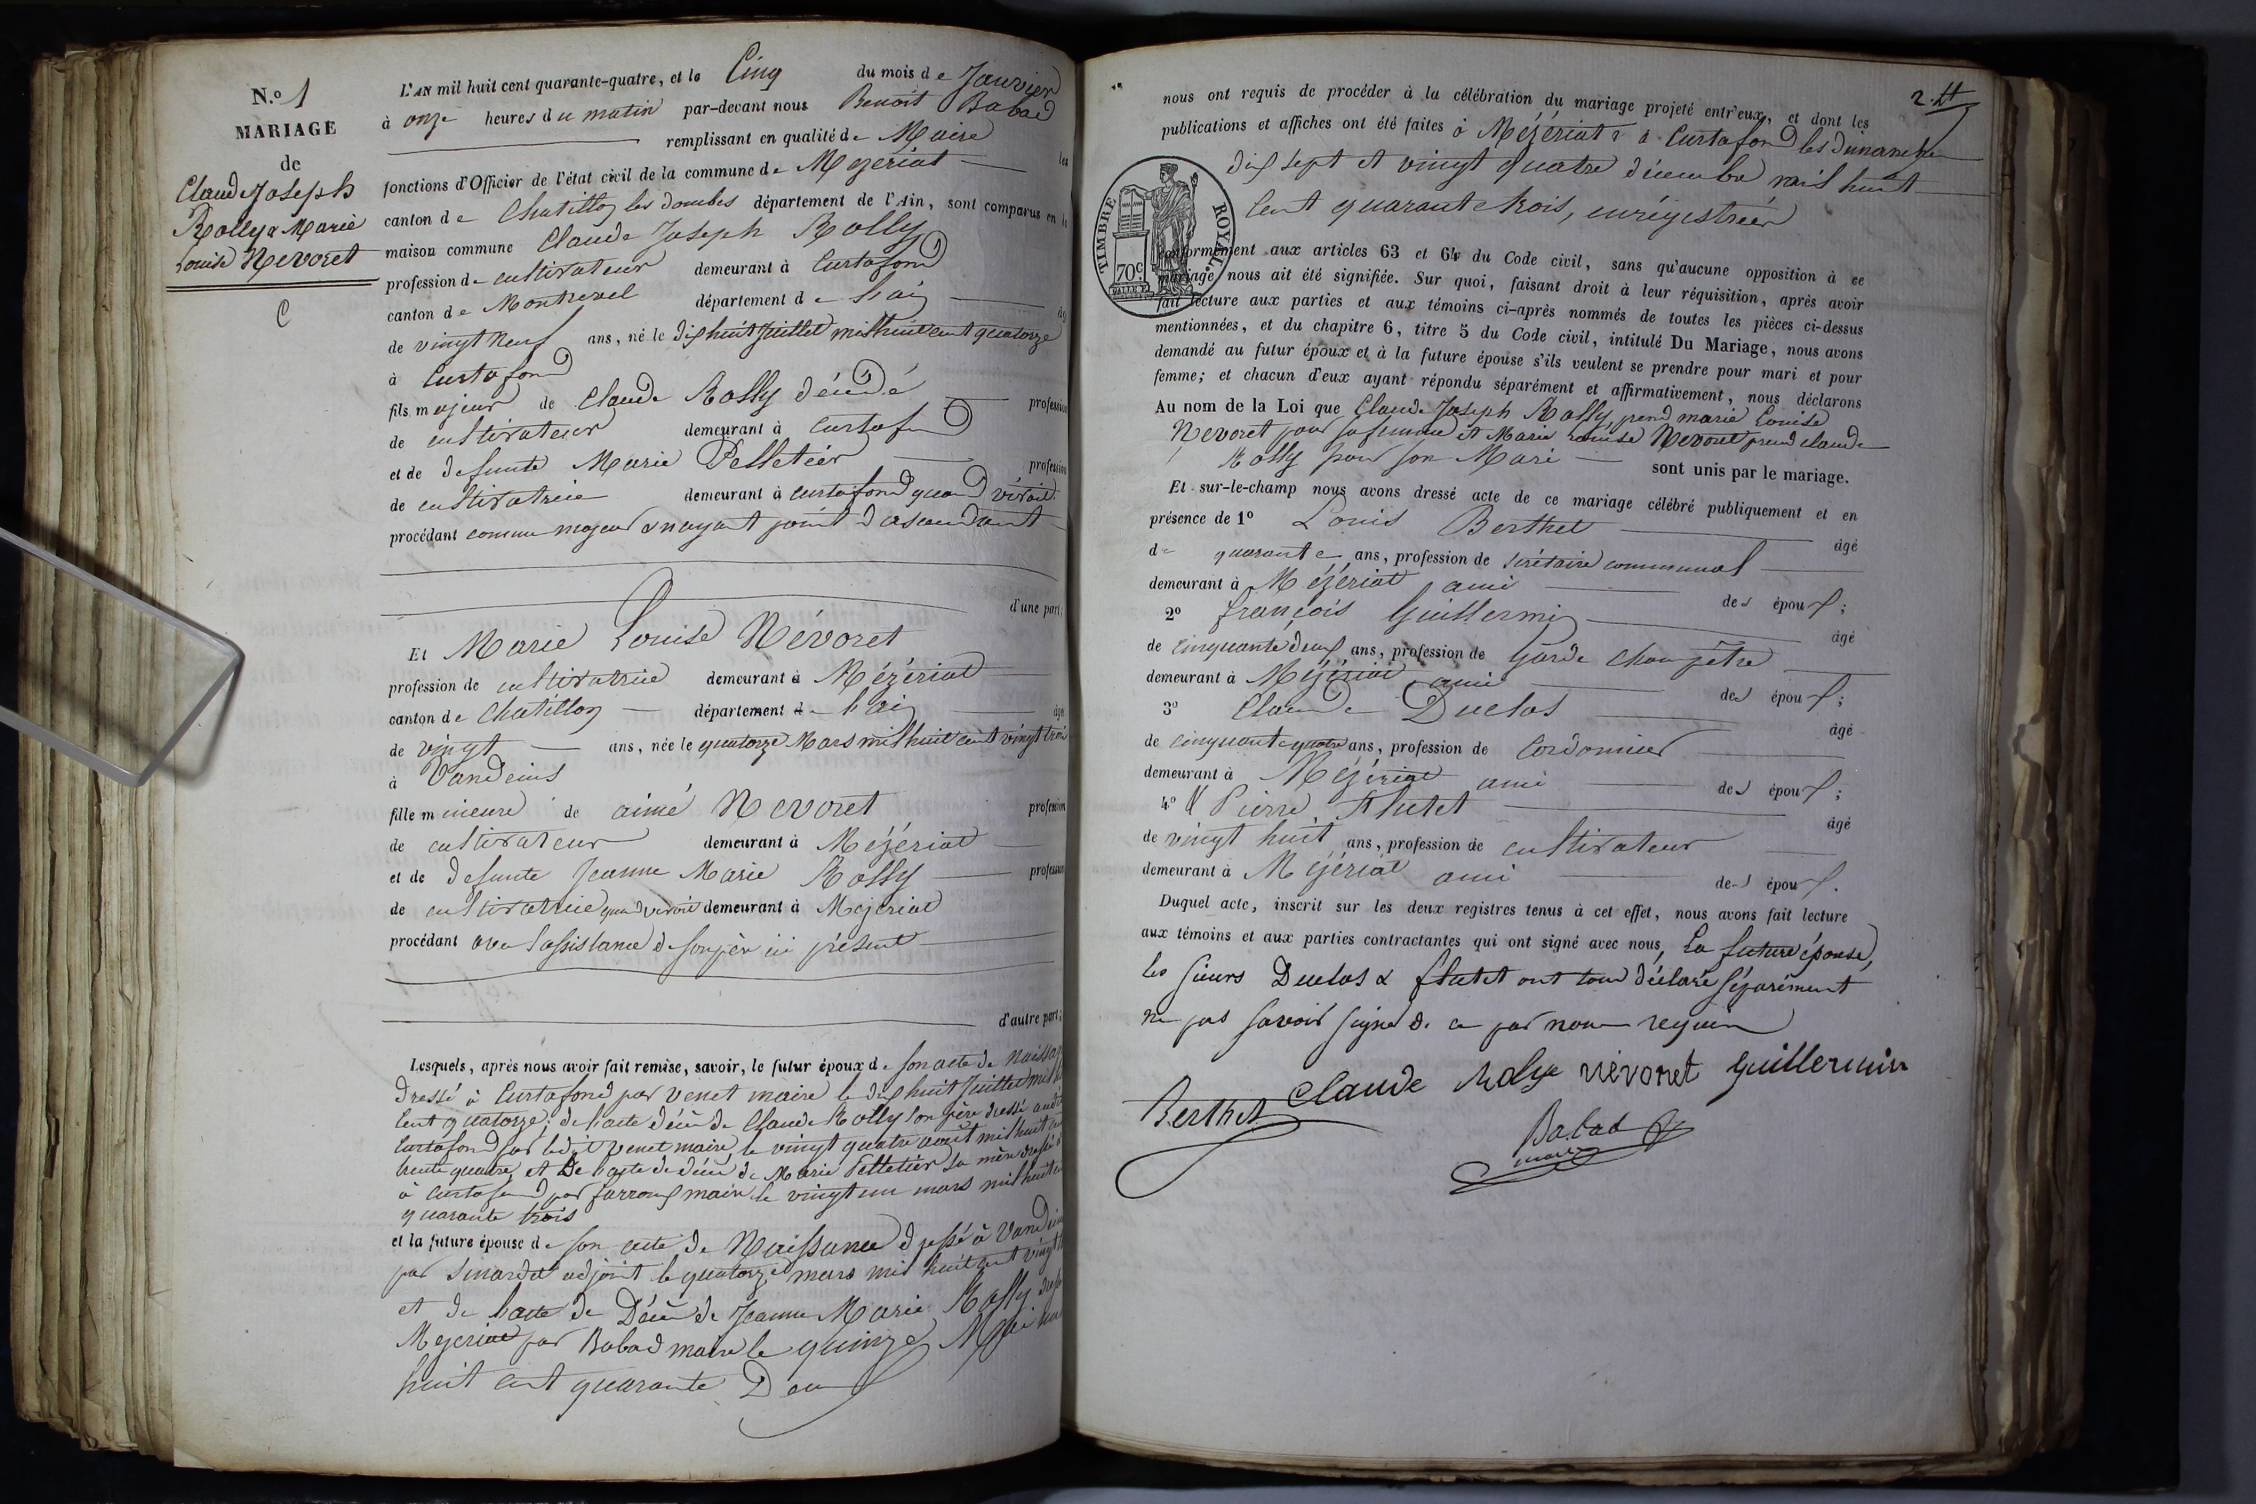 N.º 1
MARIAGE
de
Claude Joseph
Rolly & Marie
Louise Nevoret
C
L'AN mil huit cent quarante-quatre, et le Cinq du mois de Janvier
à onze heures du matin par-devant nous Benoit Babad
remplissant en qualité de Maire les
fonctions d'Officier de l'état civil de la commune de Mezeriat
canton de Chatillon les dombes département de l'Ain, sont comparus en la
maison commune Claude Joseph Rolly
profession de cultivateur demeurant à Curtafond
canton de Montrevel département de l'ain
de vingt neuf ans, né le dix huit juillet mil huit cent quatorze
à Curtafond
fils majeur de Claude Rolly décédé profession
de cultivateur demeurant à Curtafond
et de defunte Marie Pelletier profession
de cultivatrice demeurant à Curtafond quand vivait
procédant comme majeur & n'ayant point d'ascendant
d'une part;
Et Marie Louise Névoret
profession de cultivatrice demeurant à Mézériat
canton de Chatillon département de l'ain
de vingt ans, née le quatorze Mars mil huit cent vingt trois
à Vandeins
fille mineure de aimé Nevoret profession
de cultivateur demeurant à Mézériat
et de defunte Jeanne Marie Rolly profession
de cultivatrice quand vivait demeurant à Mezeriat
procédant avec l'assistance de son père ici présent
d'autre part;
Lesquels, après nous avoir fait remise, savoir, le futur époux de son acte de Naissance
dressé à Curtafond par Venet maire le dix huit Juillet mil huit
Cent quatorze; de l'acte décès de Claude Rolly son père dressé audit
Curtafond par ledit Venet maire, le vingt quatre août mil huit cent
trente quatre, et De l'acte de décès de Marie Pelletier sa mère dressé
à Curtafond par maire le vingt un mars mil huit cent
quarante trois
et la future épouse de son acte de Naissance dressé à Vandeins
par adjoint le quatorze mars mil huit cent vingt
et de l'acte de Décès de Jeanne Marie Rolly
Mezeriat par Babad maire le quinze Mai mil
huit cent quarante Deux
2.
nous ont requis de procéder à la célébration du mariage projeté entr'eux, et dont les
publications et affiches ont été faites à Mézériat & à Curtafond les dimanches
dix sept et vingt quatre décembre mil huit
Cent quarante trois, enrégistrées
TIMBRE ROYAL.
70c
conformément aux articles 63 et 64 du Code civil, sans qu'aucune opposition à ce
mariage nous ait été signifiée. Sur quoi, faisant droit à leur réquisition, après avoir
fait lecture aux parties et aux témoins ci-après nommés de toutes les pièces ci-dessus
mentionnées, et du chapitre 6, titre 5 du Code civil, intitulé Du Mariage, nous avons
demandé au futur époux et à la future épouse s'ils veulent se prendre pour mari et pour
femme; et chacun d'eux ayant répondu séparément et affirmativement, nous déclarons
Au nom de la Loi que Claude Joseph Rolly, prend marie Louise
Nevoret pour sa femme et Marie Louise Nevoret prend claude
Rolly pour son Mari sont unis par le mariage.
Et sur-le-champ nous avons dressé acte de ce mariage célébré publiquement et en
présence de 1º Louis Berthet âgé
de quarante ans, profession de secrétaire communal
demeurant à Mézériat ami des époux;
2º françois Guillermin âgé
de cinquante deux ans, profession de Garde Champêtre
demeurant à Mézériat ami des époux;
3º Claude Duclos âgé
de cinquante quatre ans, profession de Cordonnier
demeurant à Mézériat ami des époux;
4º Pierre Flutet âgé
de vingt huit ans, profession de cultivateur
demeurant à Mézériat ami des époux.
Duquel acte, inscrit sur les deux registres tenus à cet effet, nous avons fait lecture
aux témoins et aux parties contractantes qui ont signé avec nous, La future épouse,
les sieurs Duclos & flutet ont tous déclaré séparément
ne pas savoir signer de ce par nous requis
Berthet Claude Rolly nevoret Guillermin
Babad
maire